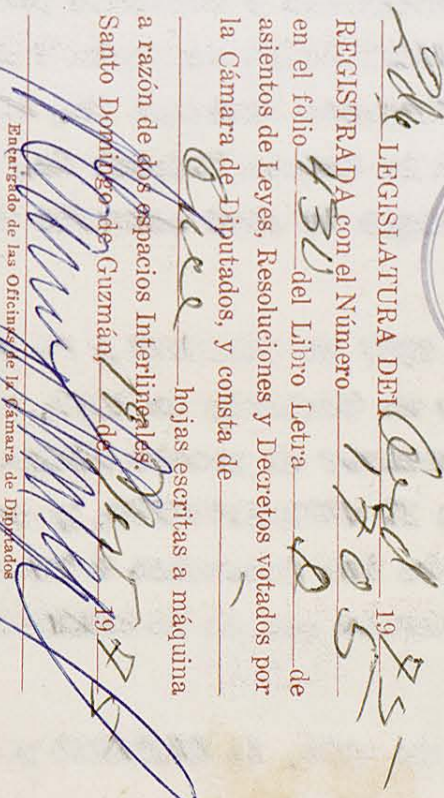 2da LEGISLATURA DEL Ord 1975
REGISTRADA con el Número 305
en el folio 430 del Libro Letra de
asientos de Leyes, Resoluciones y Decretos votados por
la Cámara de Diputados, y consta de
Once hojas escritas a máquina
a razón de dos espacios Interlineales.
Santo Domingo de Guzmán, de 1975
Encargado de las Oficinas de la Cámara de Diputados